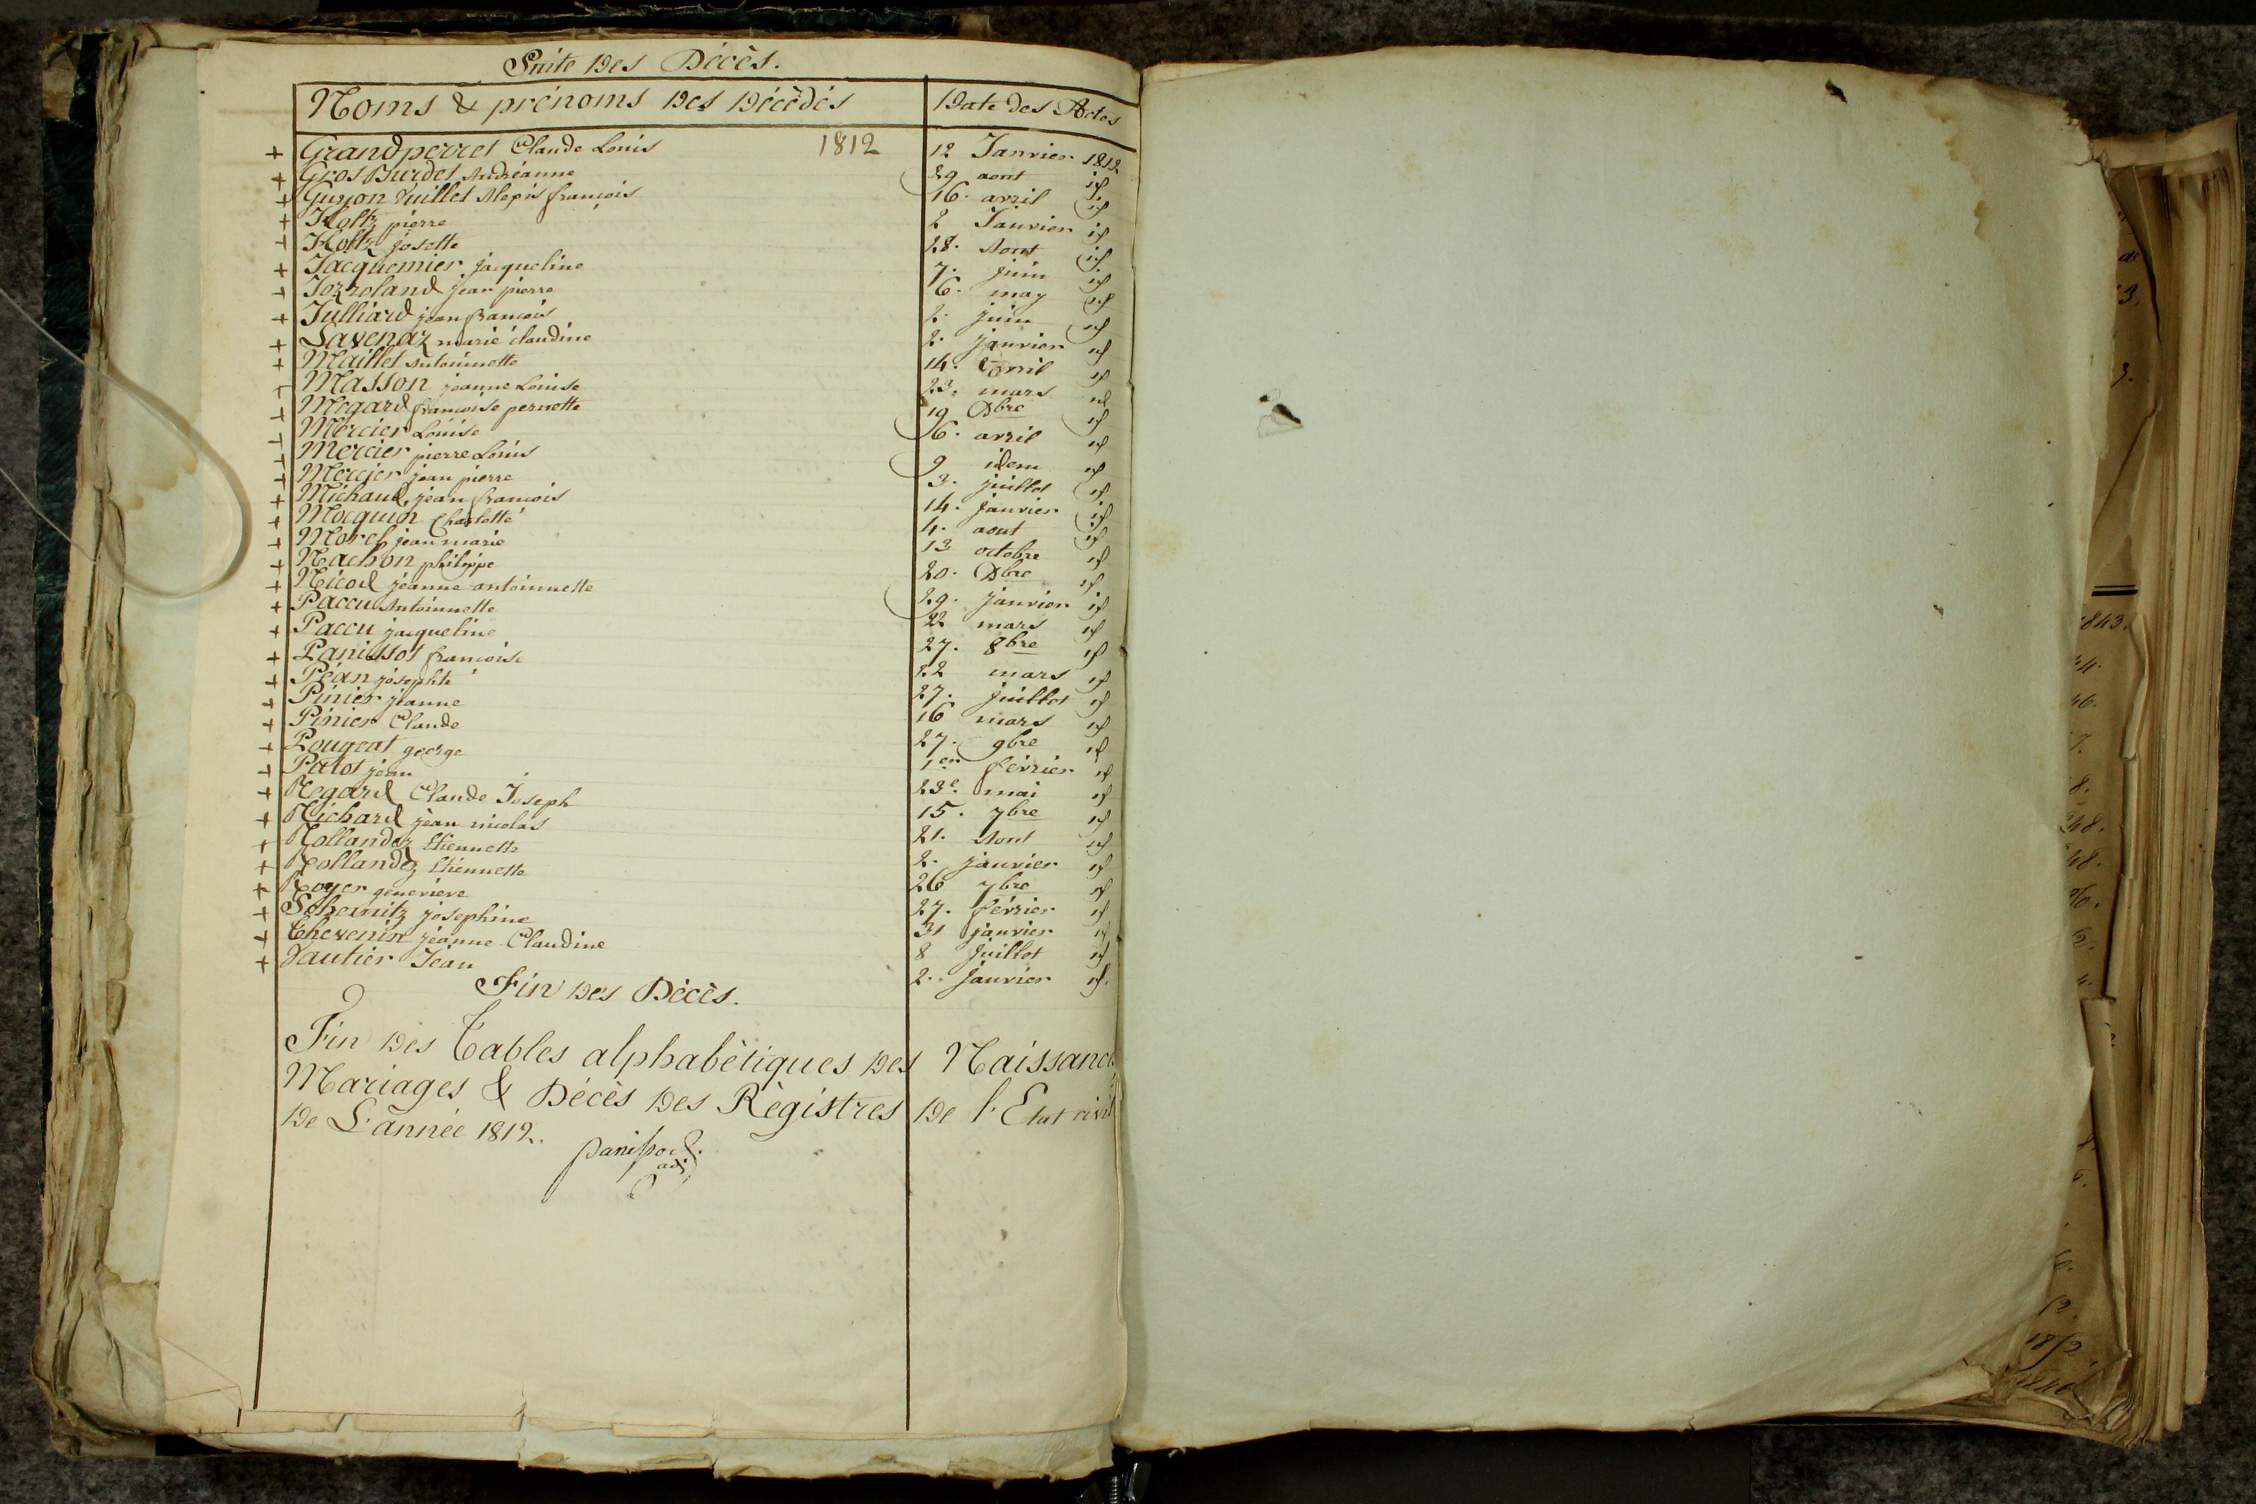 Suite Des Décès.
Noms & prénoms Des Décèdés Date des Actes
+ Grandperret Claude Louis 1812 12 Janvier 1812
+ Gros Burdet Andréanne 29 aout id
+ Guyon Vuillet Alexis françois 16. avril id
+ Holtz pierre 2 Janvier id
+ Holtz josette 28. Aout id
+ Jacquemier jacqueline 7. juin id
+ Jozroland jean pierre 6. may id
+ Julliard jean francois 2. juin id
+ Lavenaz marie claudine 2. janvier id
+ Maillet Antoinnette 14. avril id
+ Masson jeanne Louise 23. mars id
+ Megard françoise pernette 19 Xbre id
+ Mercier Louise 6. avril id
+ Mercier pierre Louis 9 idem id
+ Mercier jean pierre 3. juillet id
+ Michaud jean francois 14. janvier id
+ Mocquin Charlotte 4. aout id
+ Morel jean marie 13 octobre id
+ Nachon philippe 20. Xbre id
+ Nicod jeanne antoinnette 29. janvier id
+ Paccu Antoinnette 22 mars id
+ Paccu jacqueline 27. 8bre id
+ Panissot francoise 22 mars id
+ Péan josephte 27. juillet id
+ Pinier jeanne 16 mars id
+ Pinier Claude 27. 9bre id
+ Pougeat george 1er février id
+ Patot jean 23e. mai id
+ Regard Claude Joseph 15. 7bre id
+ Richard jean nicolas 21. Aout id
+ Rollandez Etiennette 2. janvier id
+ Rollandez Etiennette 26 7bre id
+ Royer genevieve 27. février id
+ Schemitz josephine 31 janvier id
+ Thevenin jeanne Claudine 8 juillet id
+ Vautier Jean 2.. janvier id.
Fin Des Décès.
Fin Des Tables alphabètiques Des Naissances
Mariages & Décès Des Règistres De l'Etat civil
De L'année 1812.
adj